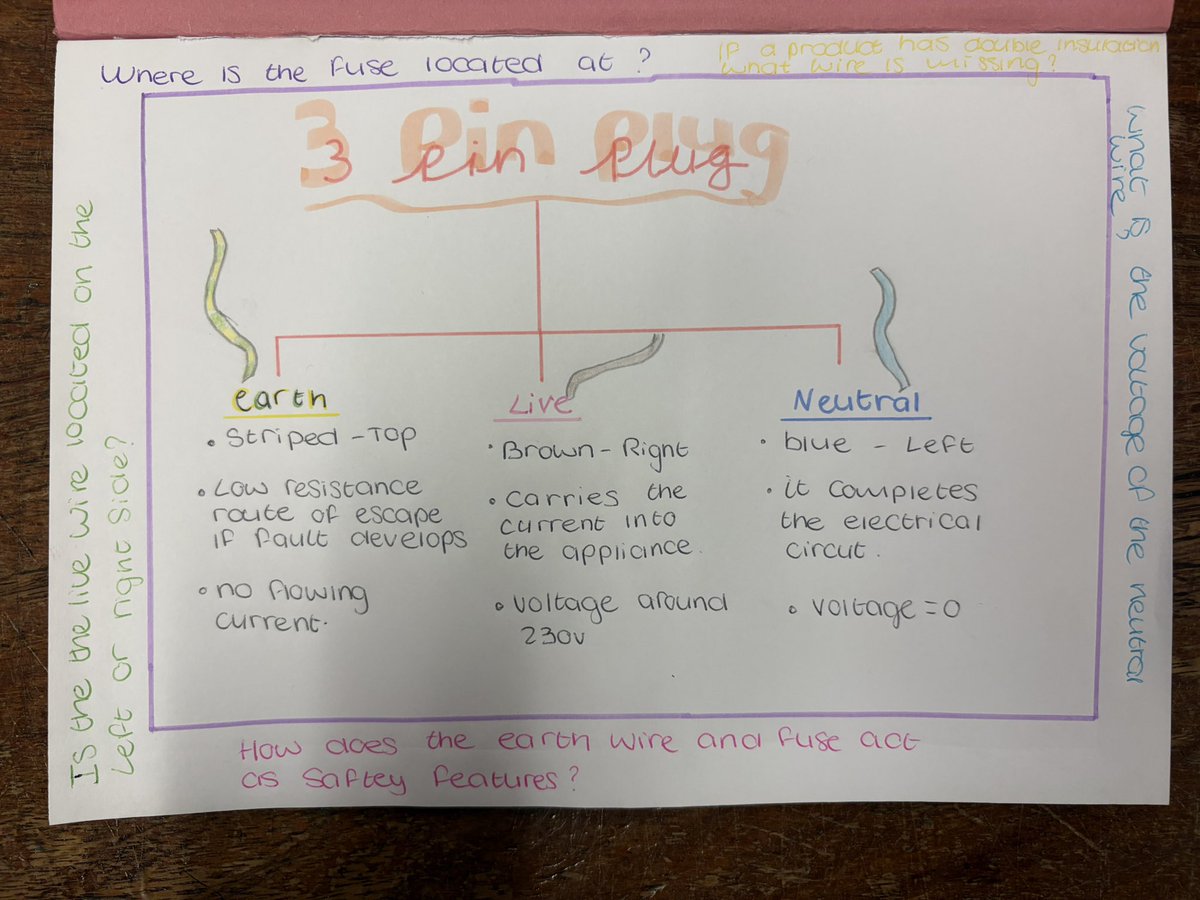 Where is the fuse located at ?
If a product has double insulation
what wire is missing?
3 Pin Plug
3 Pin Plug
earth
• Striped - Top
• Low resistance
route of escape
if fault develops
• no flowing
current.
Live
• Brown - Right
• Carries the
current into
the appliance.
• Voltage around
230v
Neutral
• blue - Left
• it completes
the electrical
circut.
• Voltage = 0
What is the voltage of the neutral
wire
Is the the live wire located on the
left or right side?
How does the earth wire and fuse act
as saftey features?